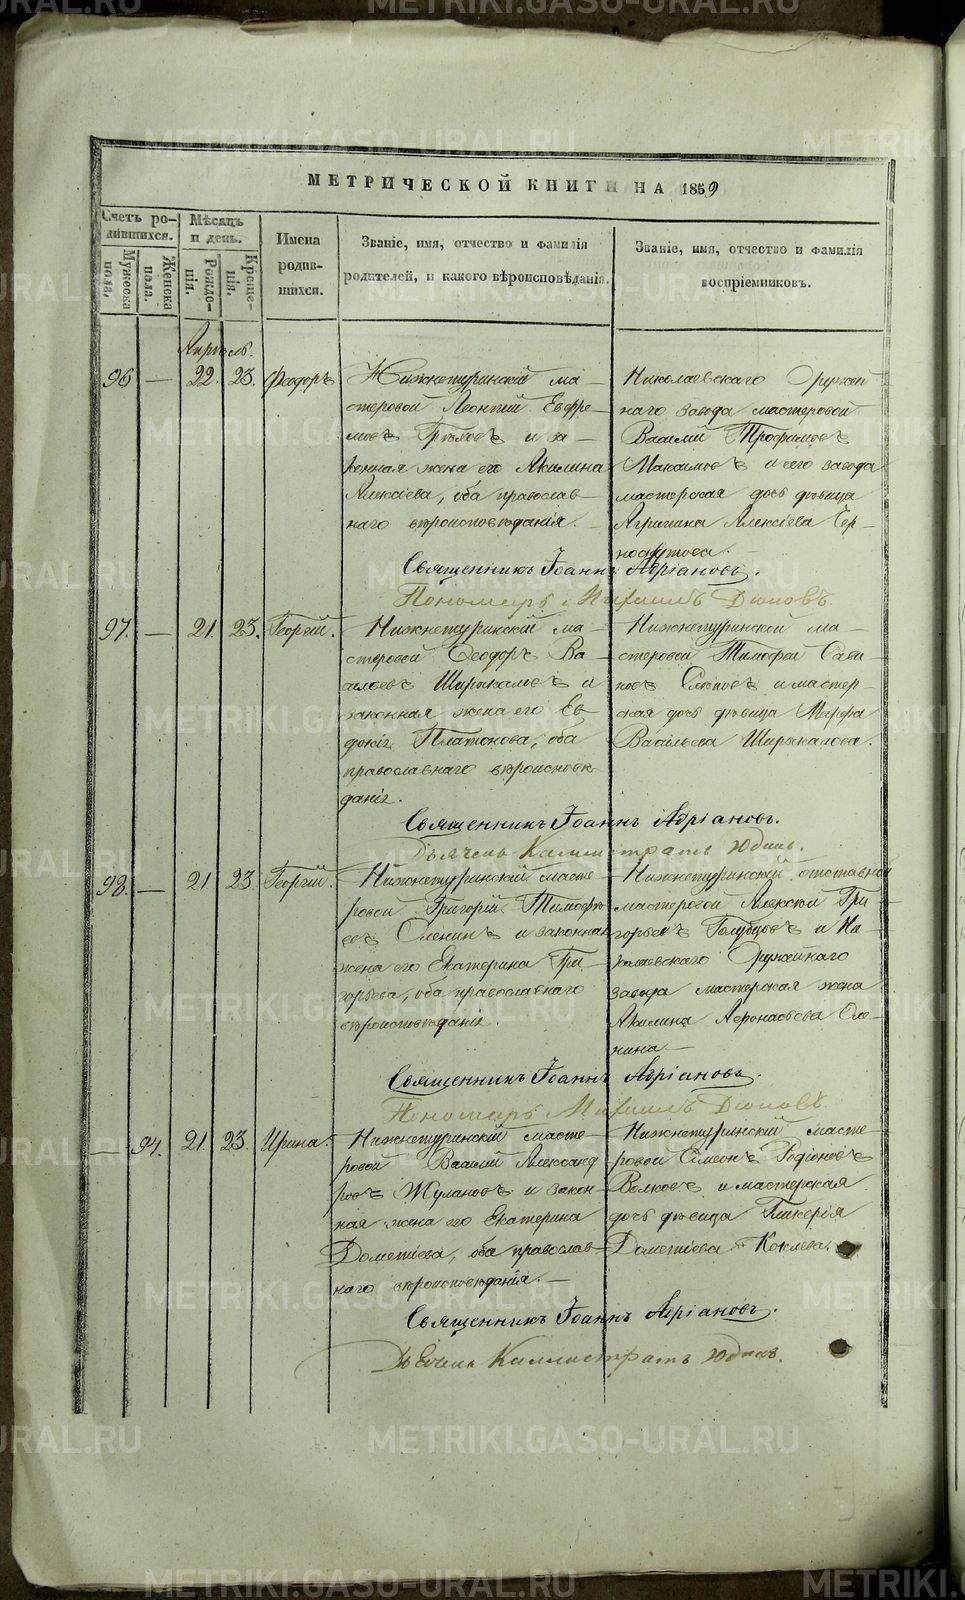 МЕТРИЧЕСКОЙ КНИГИ НА 1859
Счетъ ро-
дившихся.
Мѣсяцъ
и день.
Имена
родив-
шихся.
Званіе, имя, отчество и фамилія
родителей, и какого вѣроисповѣданія.
Званіе, имя, отчество и фамилія
воспріемниковъ.
Мужеска
пола.
Женска
пола.
Рожде-
нія.
Креще-
нія.
Апрѣль.
96 — 22. 23. Феодоръ
Нижнетуринскій ма-
стеровой Леонтій Ефре-
мовъ и за-
конная жена его Акилина
Алексіева, оба православ-
наго вѣроисповѣданія.
Николаевскаго Оружей
наго завода мастеровой
Василій Трофимовъ
Максимовъ и сего завода
мастерская дочь дѣвица
Агрипина Алексіева Чер-
Священникъ Іоаннъ Адріановъ.
Пономарь Михаилъ
97. — 21. 23. Георгій.
Нижнетуринскій ма-
стеровой Ѳеодоръ Ва-
сильевъ Ширыкаловъ и
законная жена его Ев
докія Платонова, оба
православнаго вѣроисповѣ
данія.
Нижнетуринской ма-
стеровой Тимофей Сави
новъ и мастер-
ская дочь дѣвица Марфа
Васильева Ширыкалова.
Священникъ Іоаннъ Адріановъ.
Дьячекъ Каллистратъ Юдинъ.
98. — 21 23 Георгій.
Нижнетуринскій масте
ровой Григорій Тимофѣ
евъ Оленинъ и законная
жена его Екатерина Гри
горьева, оба православнаго
вѣроисповѣданія.
Нижнетуринскій отставной
мастеровой Алексѣй Гри
горьевъ Голубцовъ и Ни
колаевскаго Оружейнаго
завода мастерская жена
Акилина Афонасьева Оле-
нина.—
Священникъ Іоаннъ Адріановъ.
Пономарь Михаилъ
— 94. 21. 23. Ирина.
Нижнетуринскій масте-
ровой Василій Александ
ровъ Жулановъ и закон-
ная жена его Екатерина
Дометіева, оба православ-
наго вѣроисповѣданія.—
Нижнетуринскій масте
ровой Симеонъ Родіоновъ
Волковъ и мастерская
дочь дѣвица Гликерія
Дометіева
Священникъ Іоаннъ Адріановъ.
Дьячекъ Каллистратъ Юдинъ.
METRIKI.GASO-URAL.RU